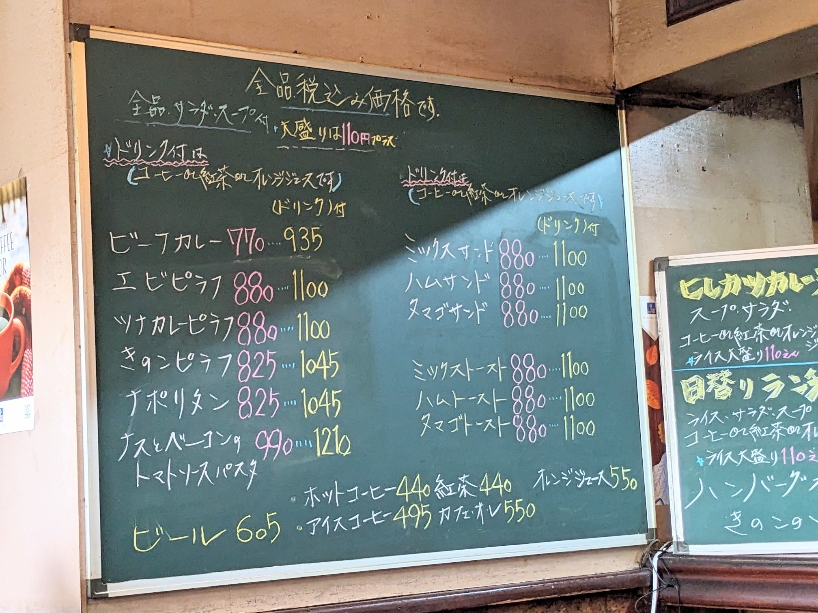 全品税込み価格です.
全品.サラダ.スープ付 大盛りは110円プラス
ドリンク付は
(コーヒーor紅茶orオレンジジュースです)
(ドリンク)付
ビーフカレー 770…935
エビピラフ 880…1100
ツナカレーピラフ 880…1100
きのこピラフ 825…1045
ナポリタン 825…1045
ナスとベーコンの 990…1210
トマトソースパスタ
ドリンク付は
(コーヒーor紅茶orオレンジジュースです)
(ドリンク)付
ミックスサンド 880…1100
ハムサンド 880…1100
タマゴサンド 880…1100
ミックストースト 880…1100
ハムトースト 880…1100
タマゴトースト 880…1100
・ホットコーヒー440 紅茶440 オレンジジュース550
・アイスコーヒー495 カフェオレ550
ビール 605
ヒレカツカレー
スープ.サラダ.
コーヒーor紅茶orオレンジ
ライス大盛り110えん
日替りランチ
ライス、サラダ、スープ
コーヒーor紅茶or
ライス大盛り110え
ハンバーグ
きのこの